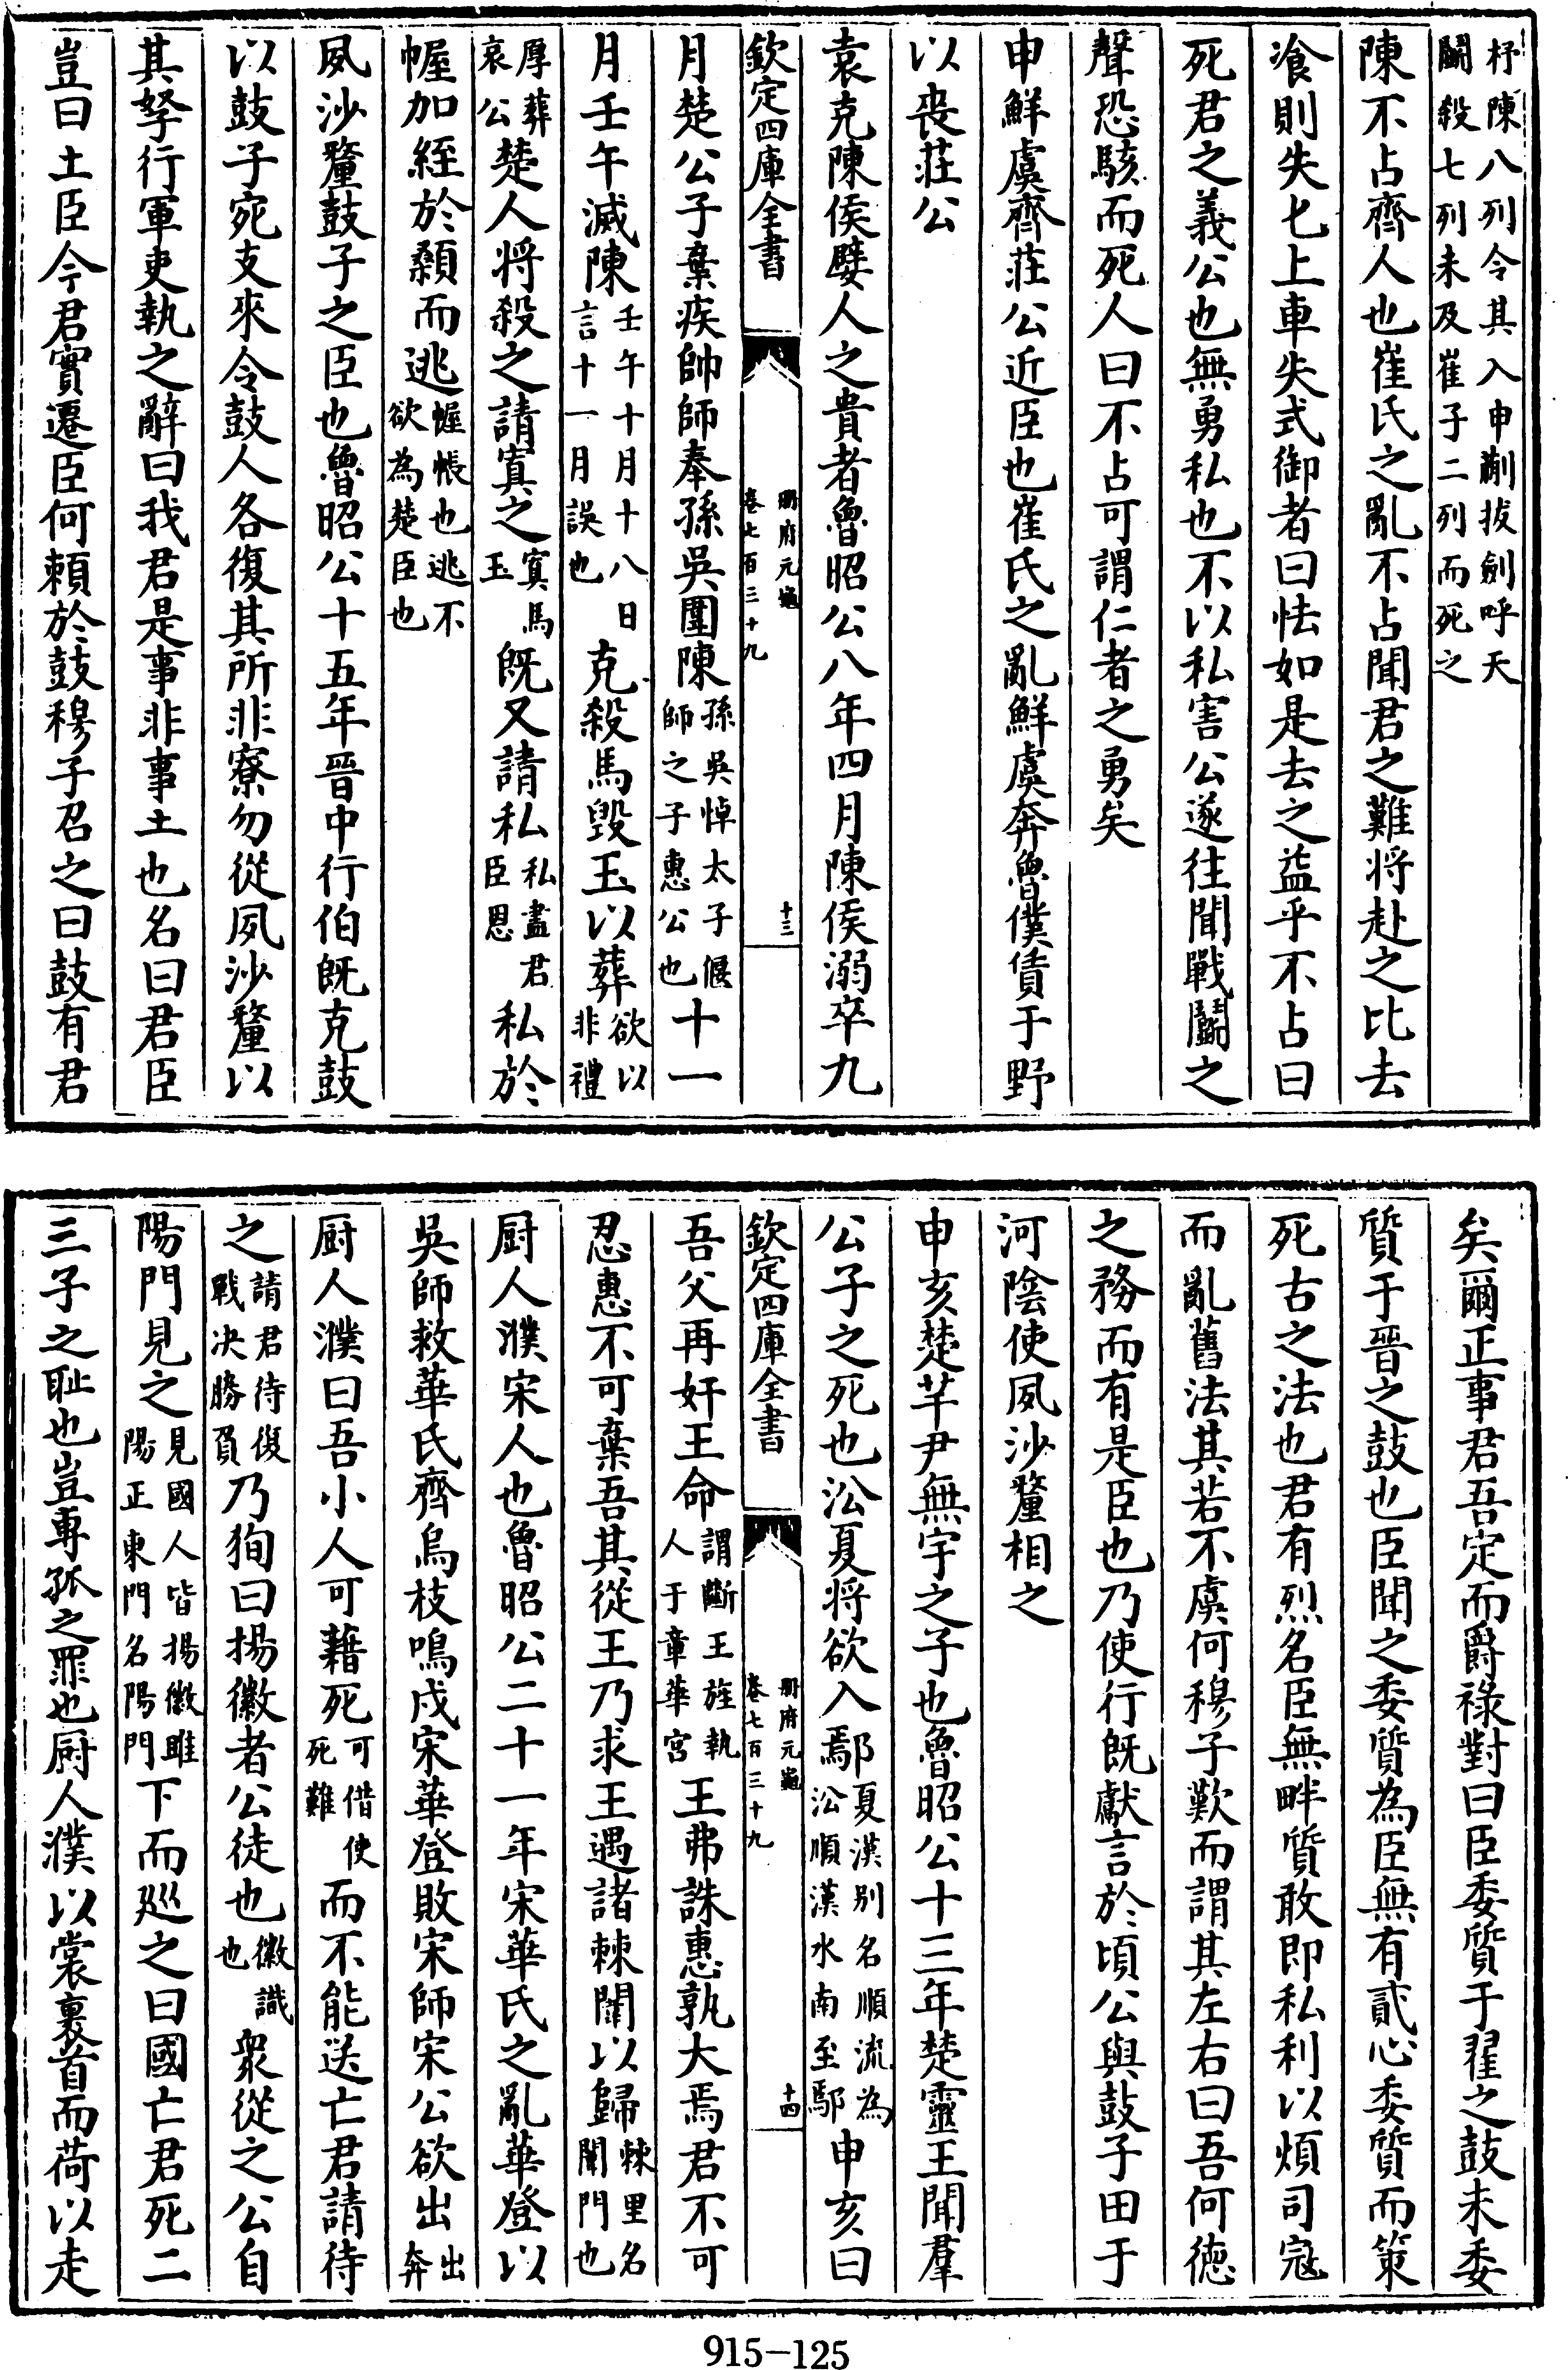 杼陳八列令其入申蒯拔劍呼天
鬭殺七列未及崔子二列而死之
陳不占齊人也崔氏之亂不占聞君之難將赴之比去
飡則失匕上車失式御者曰怯如是去之益乎不占曰
死君之義公也無勇私也不以私害公遂往聞戰鬭之
聲恐駭而死人曰不占可謂仁者之勇矣
申鮮虞齊莊公近臣也崔氏之亂鮮虞奔魯僕賃于野
以喪莊公
袁克陳侯嬖人之貴者魯昭公八年四月陳侯溺卒九
欽定四庫全書 冊府元龜 卷七百三十九 十三
月楚公子棄疾帥師奉孫吳圍陳孫吳悼太子偃師之子惠公也十一
月壬午滅陳壬午十月十八日言十一月誤也克殺馬毀玉以葬欲以非禮
厚葬哀公楚人將殺之請寘之寘馬玉既又請私私盡君臣恩私於
幄加絰於顙而逃幄帳也逃不欲為楚臣也
夙沙釐鼓子之臣也魯昭公十五年晉中行伯既克鼓
以鼓子宛支來令鼓人各復其所非寮勿從夙沙釐以
其孥行軍吏執之辭曰我君是事非事土也名曰君臣
豈曰土臣今君實遷臣何賴於鼓穆子召之曰鼓有君
矣爾正事君吾定而爵祿對曰臣委質于翟之鼓未委
質于晉之鼓也臣聞之委質為臣無有貳心委質而策
死古之法也君有烈名臣無畔質敢即私利以煩司寇
而亂舊法其若不虞何穆子歎而謂其左右曰吾何德
之務而有是臣也乃使行既獻言於頃公與鼓子田于
河陰使夙沙釐相之
申亥楚芊尹無宇之子也魯昭公十三年楚靈王聞羣
公子之死也沿夏將欲入鄢夏漢別名順流為沿順漢水南至鄢申亥曰
欽定四庫全書 冊府元龜 卷七百三十九 十四
吾父再奸王命謂斷王旌執人于章華宮王弗誅惠孰大焉君不可
忍惠不可棄吾其從王乃求王遇諸棘闈以歸棘里名闈門也
厨人濮宋人也魯昭公二十一年宋華氏之亂華登以
吳師救華氏齊烏枝鳴戍宋華登敗宋師宋公欲出出奔
厨人濮曰吾小人可藉死可借使死難而不能送亡君請待
之請君待復戰決勝負乃狥曰揚徽者公徒也徽識也衆從之公自
陽門見之見國人皆揚徽睢陽正東門名陽門下而廵之曰國亡君死二
三子之耻也豈專孤之罪也厨人濮以裳裹首而荷以走
915-125